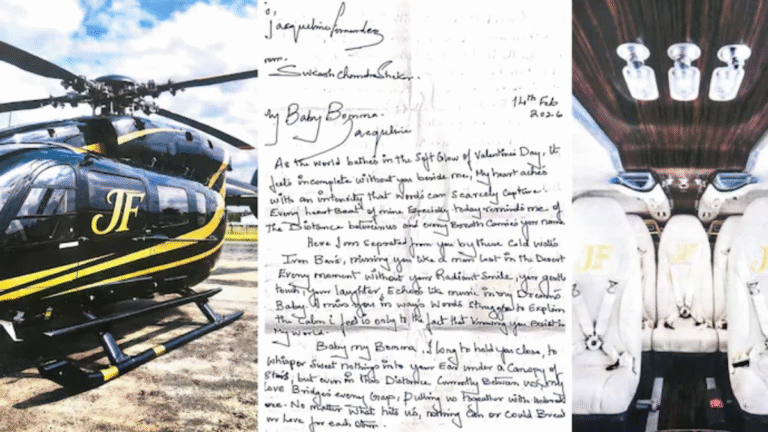 JF
o,
Jacqueline Fernandez
rom:
Sukash Chandra Shekar.
14th Feb
2026
My Baby Bomma.
Jacqueline
As the World bathes in the Soft Glow of Valentines Day, it
feels incomplete without you beside me, My heart aches
with an intensity that words can scarcely capture.
Every heart Beat of mine Especially today reminds me of
The Distance between us and every Breath Carries your name
Here I am seperated from you by these Cold walls
Iron Bars, missing you like a man lost in the Desert
Every moment without your Radiant Smile, your gentle
touch, your laughter, Echoes like music in my Dreams
Baby I miss you in ways Words Struggle to Explain
the Calm i feel is only to the fact that Knowing you Exist in
My world.
Baby my Bomma, I long to hold you close, to
whisper Sweet nothings into your Ear under a Canopy of
Stars, but even in this Distance Currently Between us, my
Love Bridges every Gap, Pulling us together with
No matter What hits us, nothing Can or Could
our love for each other.
JF
JF